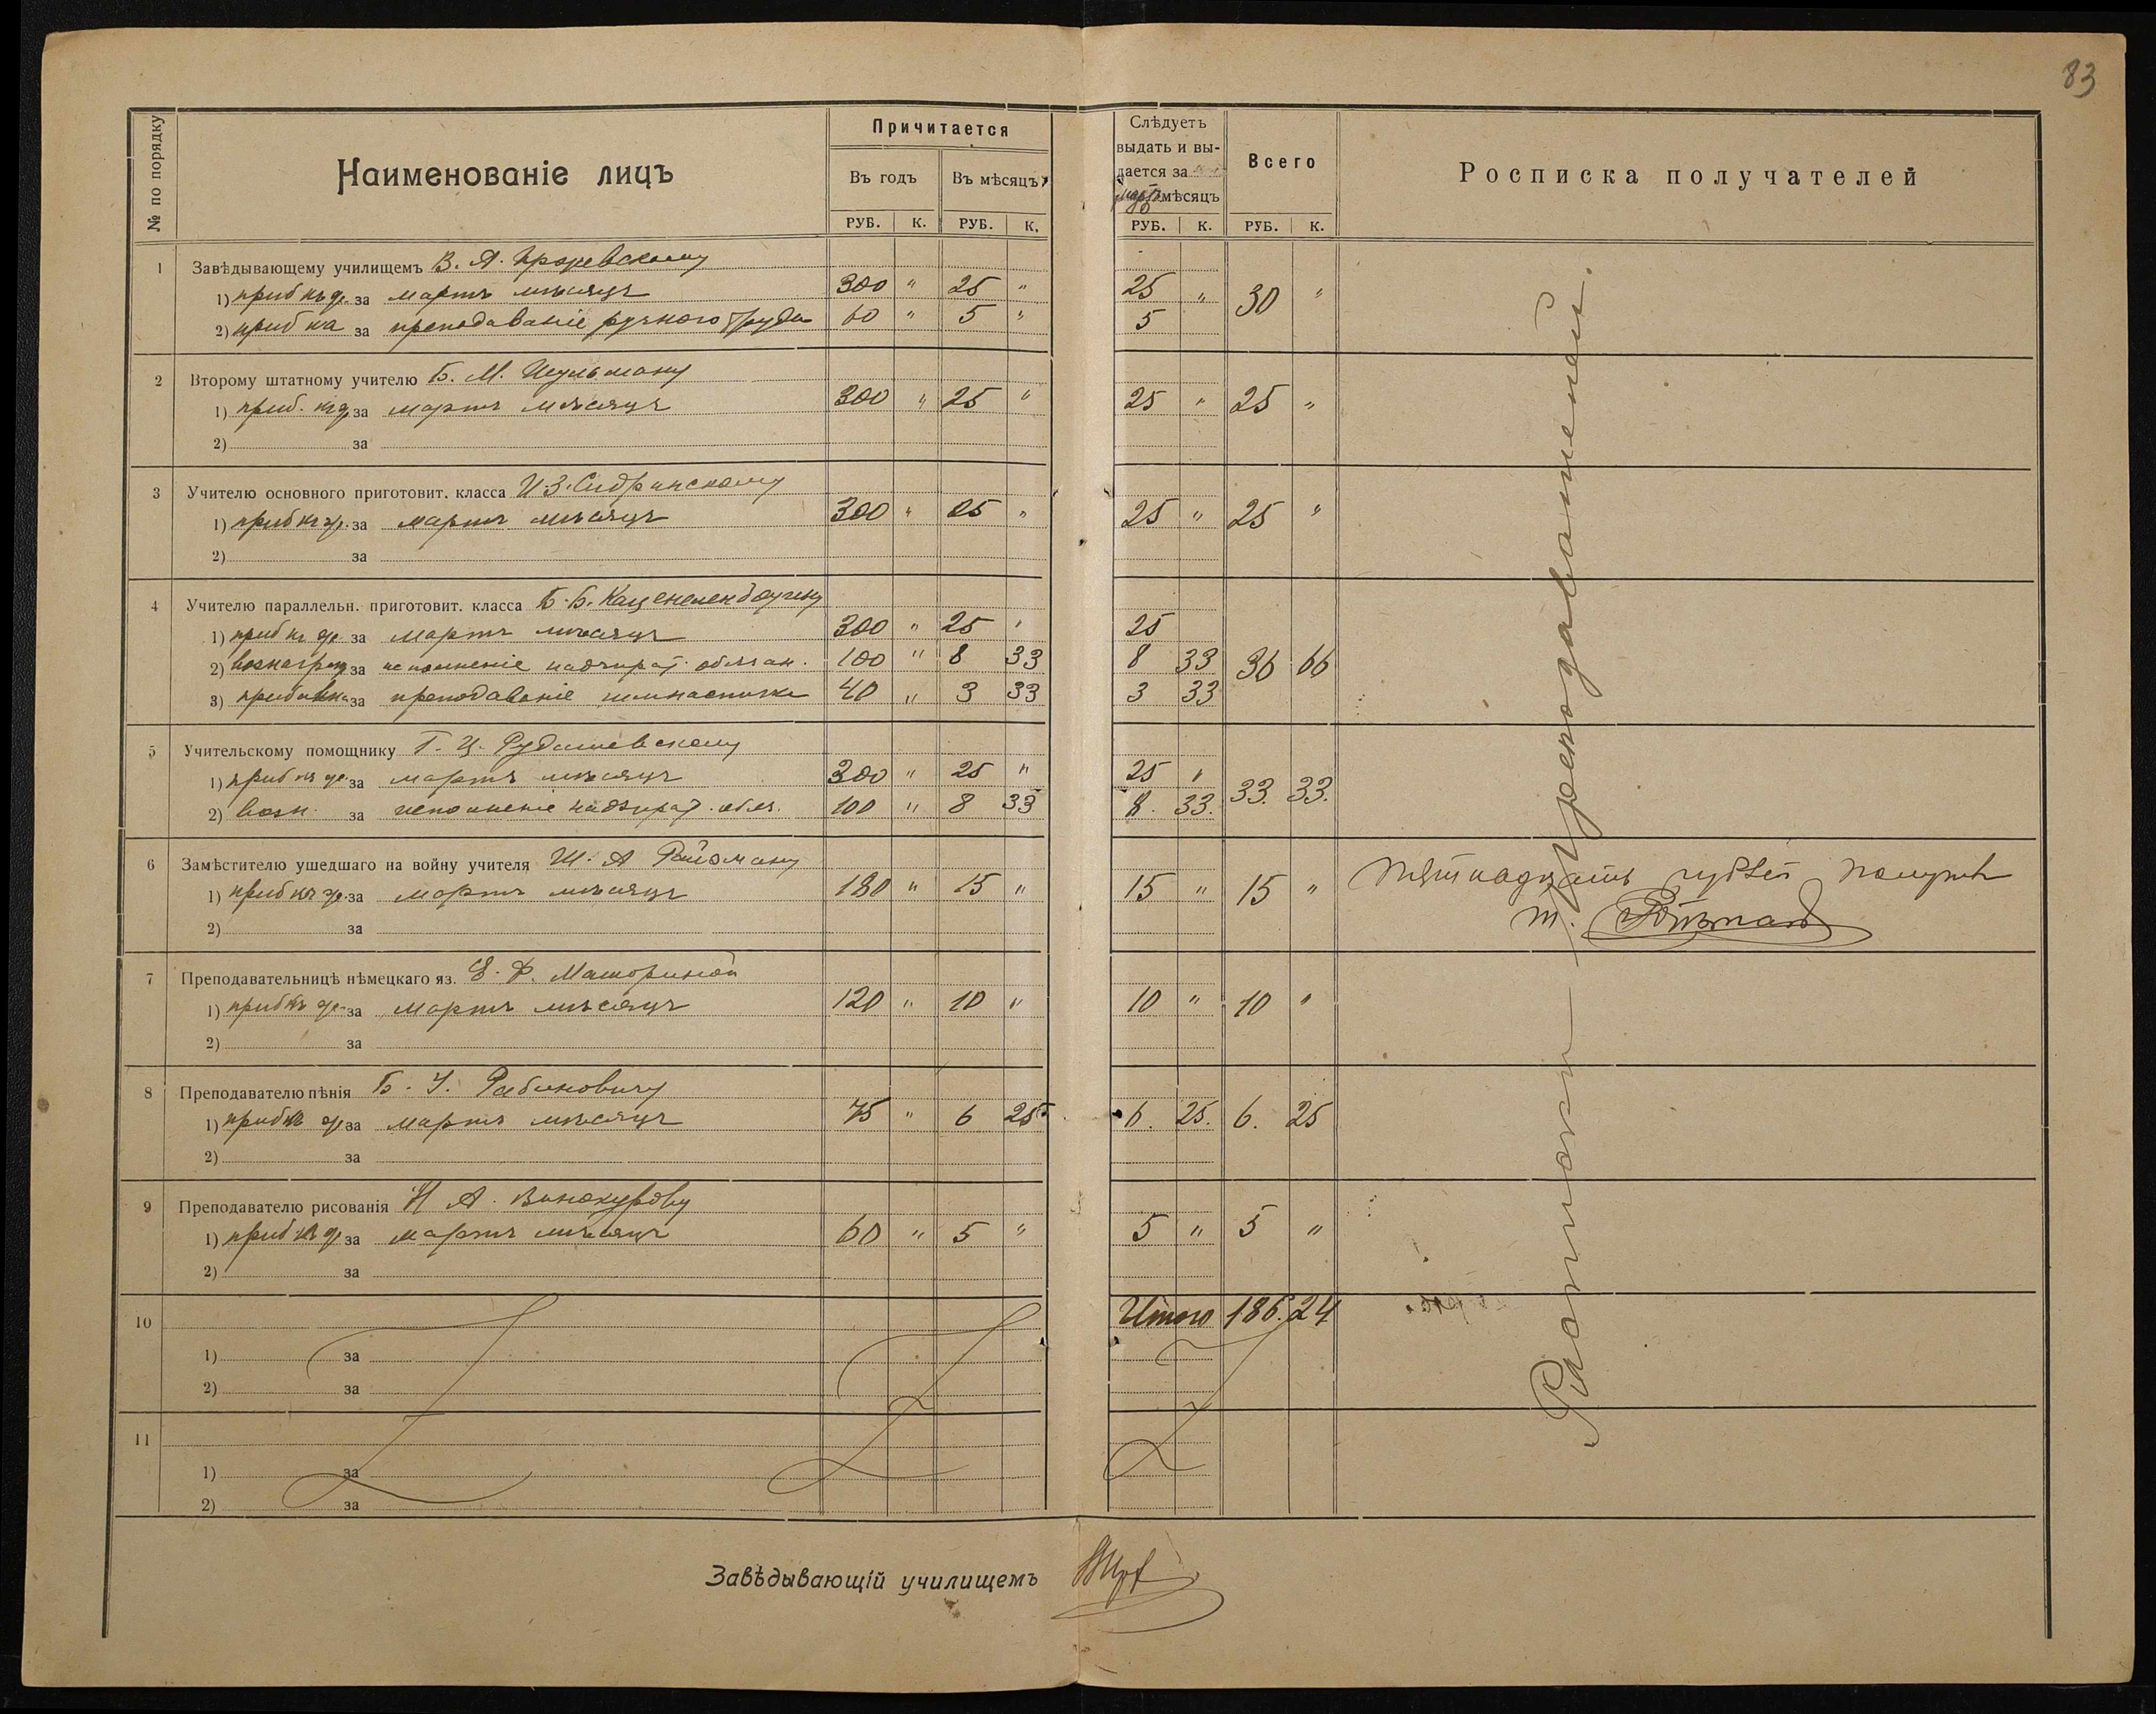 83
№ по порядку
Наименованіе лицъ
Причитается
Въ годъ
Въ мѣсяцъ
РУБ. К. РУБ. К.
Слѣдуетъ
выдать и вы-
дается за
мартъ мѣсяцъ
Всего
Росписка получателей
РУБ. К. РУБ. К.
1 Завѣдывающему училищемъ В. А.
1) приб къ ж. за мартъ мѣсяцъ 300 " 25 " 25 " 30 "
2) приб ка за преподаваніе ручного труда 60 " 5 " 5
2 Второму штатному учителю Б. М. Шульману
1) приб. къ ж. за мартъ мѣсяцъ 300 " 25 " 25 " 25 "
2) за
3 Учителю основного приготовит. класса И. З. Сидринскому
1) приб къ ж. за мартъ мѣсяцъ 300 " 25 " 25 " 25 "
2) за
4 Учителю параллельн. приготовит. класса Б. Б. Каценеленбогену
1) приб къ ж. за мартъ мѣсяцъ 300 " 25 " 25
2) вознагражд за исполненіе надзират. обязан. 100 " 8 33 8 33 36 66
3) прибавка за преподаваніе гимнастики 40 " 3 33 3 33
5 Учительскому помощнику Г. Ц. Рудашевскому
1) приб къ ж. за мартъ мѣсяцъ 300 " 25 " 25 " 33. 33.
2) возн. за исполненіе надзират. обяз. 100 " 8 33 8. 33.
6 Замѣстителю ушедшаго на войну учителя Ш. А Ройзману
1) приб къ ж. за мартъ мѣсяцъ 180 " 15 " 15 " 15 " Пятнадцать рублей получилъ
Ш. Ройзманъ
2) за
7 Преподавательницѣ нѣмецкаго яз. Е. Ф. Машориной
1) приб къ ж. за мартъ мѣсяцъ 120 " 10 " 10 " 10 "
2) за
8 Преподавателю пѣнія Б. У. Рабиновичу
1) приб къ ж. за мартъ мѣсяцъ 75 " 6 25 6. 25. 6. 25
2) за
9 Преподавателю рисованія Н А. Винокурову
1) приб къ ж. за мартъ мѣсяцъ 60 " 5 " 5 " 5 "
2) за
10 Итого 186. 24
1) за
2) за
11
1) за
2) за
преподавателей.
Завѣдывающій училищемъ